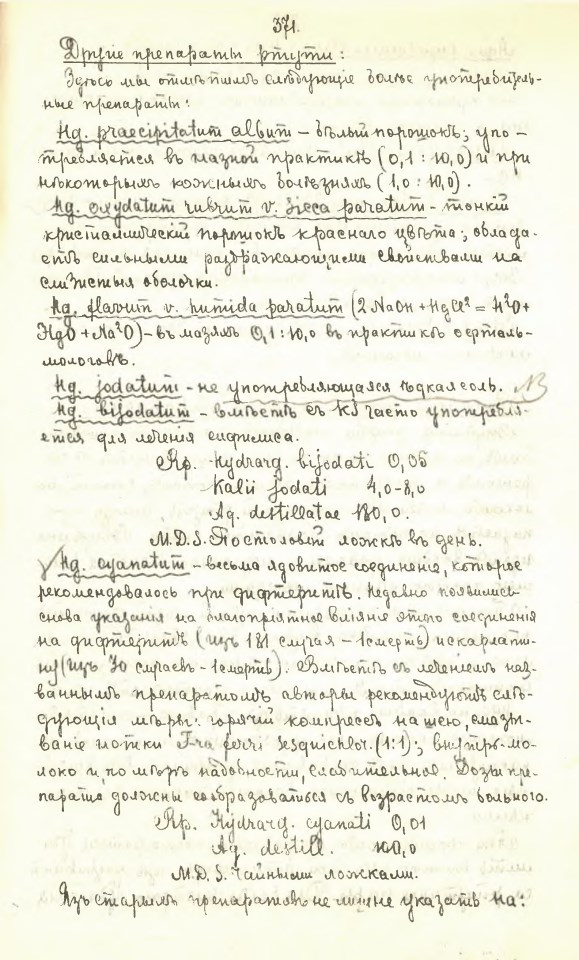 371.
Другіе препараты ртути:
Здѣсь мы отмѣтимъ слѣдующіе болѣе употребитель-
ные препараты:
Hg. praecipitatum album – бѣлый порошокъ; упо-
требляется въ глазной практикѣ (0,1 : 10,0) и при
нѣкоторыхъ кожныхъ болѣзняхъ (1,0 : 10,0).
Hg. oxydatum rubrum v. sicca paratum – тонкій
кристаллическій порошокъ краснаго цвѣта; облада-
етъ сильными раздражающими свойствами на
слизистыя оболочки.
Hg. flavum v. humida paratum (2NaOH + HgCl² = H²O +
HgO + Na²O) – въ мазяхъ 0,1 : 10,0 въ практикѣ офталь-
мологовъ.
Hg. jodatum – не употребляющаяся ѣдкая соль. NB
Hg. bijodatum – вмѣстѣ съ KJ часто употребля-
ется для леченія сифилиса.
Rp. Hydrarg. bijodati 0,05
Kalii jodati 4,0–8,0
Aq. destillatae 180,0.
M.D.S. По столовой ложкѣ въ день.
Hg. cyanatum – весьма ядовитое соединеніе, которое
рекомендовалось при дифтеритѣ. Недавно появились
снова указанія на благопріятное вліяніе этого соединенія
на дифтеритъ (изъ 181 случая – 1 смерть) и скарлати-
ну (изъ 30 случаевъ – 1 смерть). Вмѣстѣ съ леченіемъ наз-
ваннымъ препаратомъ авторы рекомендуютъ слѣ-
дующія мѣры: горячій компрессъ на шею, смазы-
ваніе глотки T-ra ferri sesquichlor. (1:1); внутрь – мо-
локо и, по мѣрѣ надобности, слабительное. Дозы пре-
парата должны сообразоваться съ возрастомъ больного.
Rp. Hydrarg. cyanati 0,01
Aq. destill. 100,0
M.D.S. Чайными ложками.
Изъ старыхъ препаратовъ не лишне указать на: